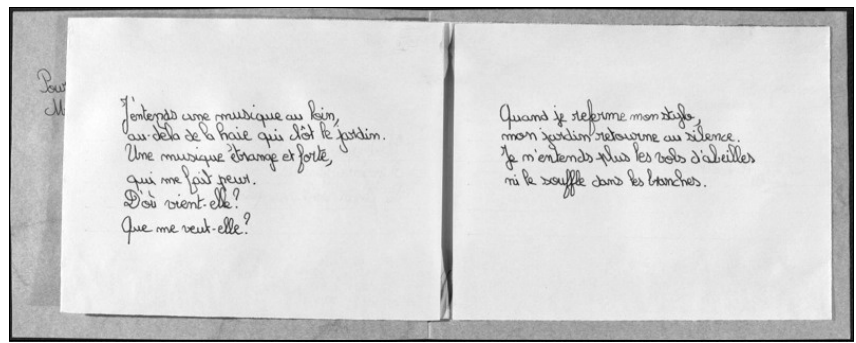 Pour
M
J'entends une musique au loin,
au-delà de la haie qui clôt le jardin.
Une musique étrange et forte,
qui me fait peur.
D'où vient-elle?
Que me veut-elle?
Quand je referme mon stylo,
mon jardin retourne au silence.
Je n'entends plus les vols d'abeilles
ni le souffle dans les branches.